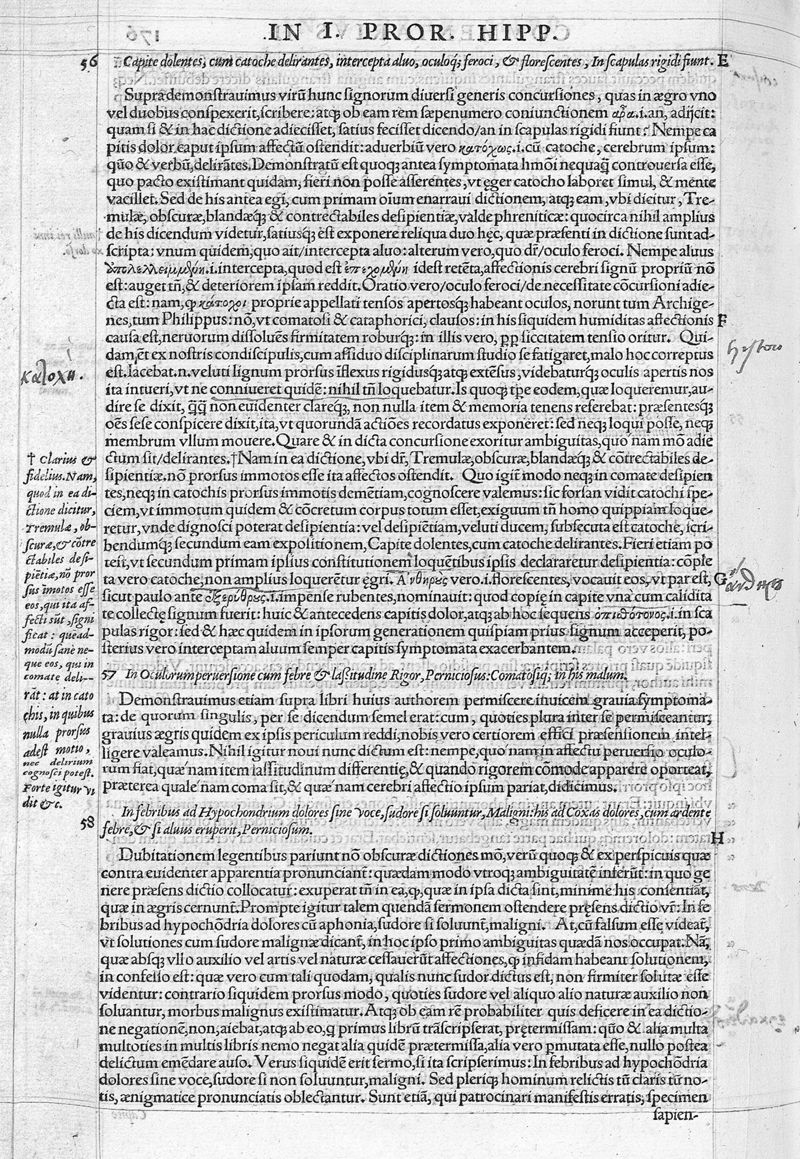 IN I. PROR. HIPP.
56 Capite dolentes, cum catoche delirantes, intercepta aluo, oculoq; feroci, & florescentes, In scapulas rigidi fiunt. E
Supra demonstrauimus virū hunc signorum diuersi generis concursiones, quas in ægro vno
vel duobus conspexerit, scribere: atq; ob eam rem sæpenumero coniunctionem ἆρα .i. an, adijcit:
quam si & in hac dictione adiecisset, satius fecisset dicendo/an in scapulas rigidi fiunt: Nempe ca
pitis dolor caput ipsum affectū ostendit: aduerbiū vero κατόχως .i. cū catoche, cerebrum ipsum:
quō & verbū, delirātes. Demonstratū est quoq; antea symptomata hmōi nequaq̄ controuersa esse,
quo pacto existimant quidam, fieri non posse asserentes, vt ęger catocho laboret simul, & mente
vacillet. Sed de his antea egi, cum primam oīum enarraui dictionem, atq; eam, vbi dicitur, Tre-
mulæ, obscuræ, blandæq; & contrectabiles desipientiæ, valde phreniticæ: quocirca nihil amplius
de his dicendum videtur, satiusq; est exponere reliqua duo hęc, quæ præsenti in dictione sunt ad-
scripta: vnum quidem, quo ait/intercepta aluo: alterum vero, quo dr̄/oculo feroci. Nempe aluus
.i. intercepta, quod est idest retēta, affectionis cerebri signū propriū nō
est: auget tn̄, & deteriorem ipsam reddit. Oratio vero/oculo feroci/de necessitate cōcursioni adie-
cta est: nam, q̨ κάτοχοι proprie appellati tensos apertosq; habeant oculos, norunt tum Archige-
nes, tum Philippus: nō, vt comatosi & cataphorici, clausos: in his siquidem humiditas affectionis F
causa est, neruorum dissoluēs firmitatem roburq;: in illis vero, pp̄ siccitatem tensio oritur. Qui-
dam, ēt ex nostris condiscipulis, cum assiduo disciplinarum studio se fatigaret, malo hoc correptus
est. Iacebat .n. veluti lignum prorsus īflexus rigidusq; atq; extēsus, videbaturq; oculis apertis nos
ita intueri, vt ne conniueret quidē: nihil tn̄ loquebatur. Is quoq; tp̄e eodem, quæ loqueremur, au-
dire se dixit, q̄q̄ non euidenter clareq;, non nulla item & memoria tenens referebat: præsentesq;
oēs sese conspicere dixit, ita, vt quorundā actiōes recordatus exponeret: sed neq; loqui posse, neq;
membrum vllum mouere. Quare & in dicta concursione exoritur ambiguitas, quo nam mō adie
ctum sit/delirantes. †Nam in ea dictione, vbi dr̄, Tremulæ, obscuræ, blandæq; & cōtrectabiles de-
sipientiæ. nō prorsus immotos esse ita affectos ostendit. Quo igit̄ modo neq; in comate desipien
tes, neq; in catochis prorsus immotis demētiam, cognoscere valemus: sic forsan vidit catochi spe-
ciem, vt immotum quidem & cōcretum corpus totum esset, exiguum tn̄ homo quippiam loque-
retur, vnde dignosci poterat desipientia: vel desipiētiam, veluti ducem, subsecuta est catoche, scri-
bendumq; secundum eam expositionem, Capite dolentes, cum catoche delirantes. Fieri etiam po
test, vt secundum primam ipsius constitutionem loquētibus ipsis declararetur desipientia: cōple
ta vero catoche, non amplius loqueret̄ur ęgri. Ἀνθηρὸς vero .i. florescentes, vocauit eos, vt par est, G
sicut paulo ante ἐξερύθρους .i. impense rubentes, nominauit: quod copię in capite vna cum calidita
te collectę signum fuerit: huic & antecedens capitis dolor, atq; ab hoc sequens ὀπισθότονος .i. in sca
pulas rigor: sed & hæc quidem in ipsorum generationem quispiam prius signum acceperit, po-
sterius vero interceptam aluum semper capitis symptomata exacerbantem.
57 In Oculorum peruersione cum febre & lassitudine Rigor, Perniciosus: Comatosiq; in his malum.
Demonstrauimus etiam supra libri huius authorem permiscere inuicem grauia symptoma-
ta: de quorum singulis, per se dicendum semel erat: cum, quoties plura inter se permisceantur,
grauius ægris quidem ex ipsis periculum reddi, nobis vero certiorem effici præsensionem intel-
ligere valeamus. Nihil igitur noui nunc dictum est: nempe, quo'nam in affectu peruersio oculo-
rum fiat, quæ'nam item lassitudinum differentię, & quando rigorem cōmode apparere oporteat,
præterea quale'nam coma sit, & quæ'nam cerebri affectio ipsum pariat, didicimus.
58 In febribus ad Hypochondrium dolores sine Voce, sudore si soluuntur, Maligni: his ad Coxas dolores, cum ardente
febre, & si aluus eruperit, Perniciosum. H
Dubitationem legentibus pariunt nō obscuræ dictiones mō, verū quoq; & ex perspicuis quæ
contra euidenter apparentia pronunciant̄: quædam modo vtroq; ambiguitatē inferūt: in quo ge
nere præsens dictio collocatur: exuperat tn̄ in ea, q̨, quæ in ipsa dicta sint, minime his consentiāt,
quæ in ægris cernunt̄. Prompte igitur talem quendā sermonem ostendere pręsens dictio vr̄: In fe
bribus ad hypochōdria dolores cū aphonia, sudore si soluunt̄, maligni. At, cū falsum esse videat̄,
vt solutiones cum sudore malignæ dicant̄, in hoc ipso primo ambiguitas quædā nos occupat: Nā,
quæ absq; vllo auxilio vel artis vel naturæ cessauerūt affectiones, q̨ infidam habeant solutionem,
in confesso est: quæ vero cum tali quodam, qualis nunc sudor dictus est, non firmiter solutæ esse
videntur: contrario siquidem prorsus modo, quoties sudore vel aliquo alio naturæ auxilio non
soluantur, morbus malignus existimatur. Atq; ob eam rē probabiliter quis deficere in ea dictio-
ne negationē, non, aiebat, atq; ab eo, q primus librū trāscripserat, prętermissam: quō & alia multa
multoties in multis libris nemo negat alia quidē prætermissa, alia vero pmutata esse, nullo postea
delictum emēdare auso. Verus siquidē erit sermo, si ita scripserimus: In febribus ad hypochōdria
dolores sine voce, sudore si non soluuntur, maligni. Sed pleriq; hominum relictis tū claris tū no-
tis, ænigmatice pronunciatis oblectantur. Sunt etiā, qui patrocinari manifestis erratis, specimen
sapien-
κατοχή.
† Clarius &
fidelius. Nam,
quod in ea di-
ctione dicitur,
Tremulæ, ob-
scuræ, & cōtre
ctabiles desi-
piētiæ, nō pror
sus imotos esse
eos, qui ita af-
fecti sūt, signi
ficat: quead-
modū sanè ne-
que eos, qui in
comate deli--
rāt: at in cato
chis, in quibus
nulla prorsus
adest motio,
nec delirium
cognosci potest.
Forte igitur vi
dit &c.